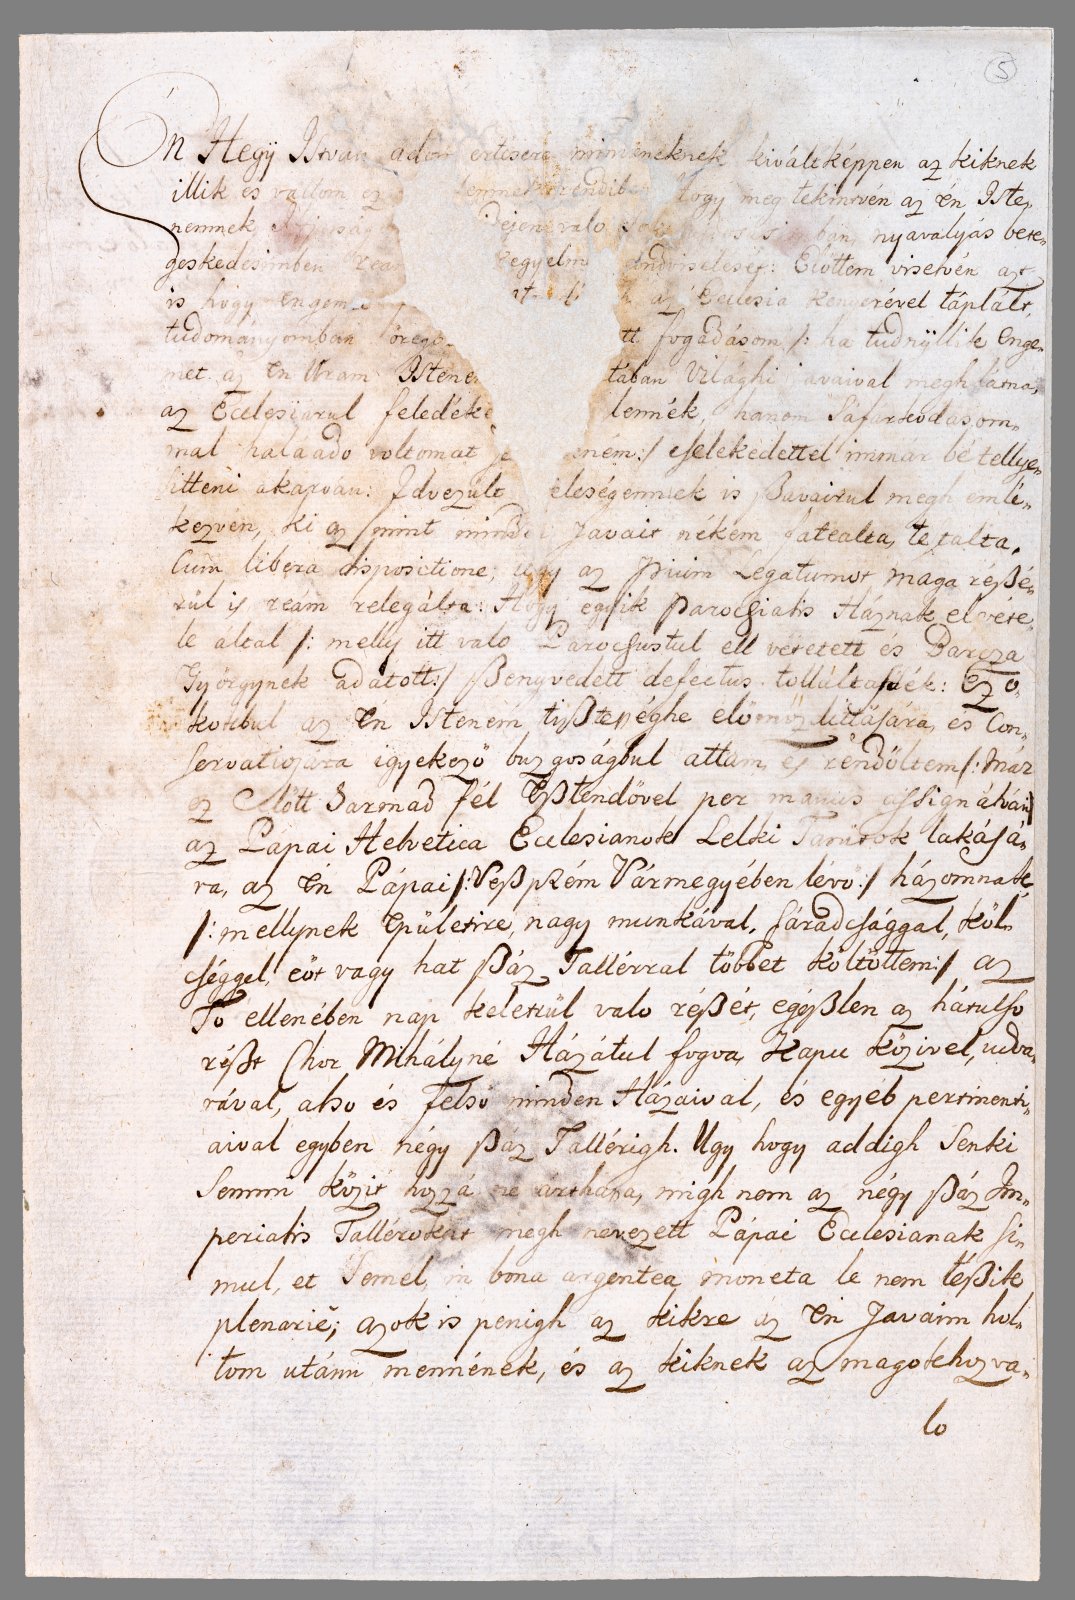 5
Én Hegÿ István adom értésére mindeneknek kiváltképpen az kiknek
illik és vallom ez rendiben hogy meg tekintvén az Én Iste„
nemnek Ifjuság idejen valo nyavalyás bete„
geskedésimben ream kegyelm gondviselését: Elöttem viselvén azt
is hogy Engem az Ecclesia kenyerével táplált,
tudományomban öreg tt fogadásom /: ha tudnÿllik Enge„
met az Én Uram Istene tában Világhi javaival megh látna,
az Ecclesiarul feledéke lennék, hanem Sáfárkodásom„
mal haláado voltomat eném:/ cselekedettel immár bé tellye„
sitteni akarván: Idvezült eleségemnek is ßavairul megh emlé„
kezvén, ki az mint minden Javait nékem fatealta, testalta,
Cum libera dispositione; ugy az pium Legatumot maga réßé„
rül is reám relegálta: Hogy egyik Parochialis Háznak el véte„
le altal /: melly itt valo Parochustul ell vétetett és Barcza
Györgynek adatott:/ ßenyvedett defectus tollúltassék: Ez o„
kokbul az Én Istenem tißteßéghe elömozdittására, és Con„
servatiojára igyekezö buzgoságbul attam, és rendöltem /: Már
ez Elött Harmad fél Eßtendövel per manus assignálván
az Pápai Helvetica Ecclesianok Lelki Tanitok lakásá„
ra, az Én Pápai /: Veßprém Vármegyében lévö :/ házomnak,
/: mellynek Epületire, nagy munkával, fáradsággal, köl„
cséggel, eöt vagy hat ßáz Tallérral többet költöttem:/ az
To ellenében nap keletrül valo réßét, egéßlen az hátulso
réßt Chor Mihályné Házátul fogva, Kapu közivel, udva„
rával, also és felsö minden Házaival, és egyéb pertinenti„
aival egyben négy ßáz Tallérigh. Ugy hogy addigh Senki
Semmi közit hozzá ne árthassa, migh nem az négy ßáz Im„
perialis Tallérokat megh nevezett Pápai Ecclesianak Si„
mul, et Semel, in bona argentea moneta le nem téßik
plenarié; azok is penigh az kikre az Én Javaim hol„
tom utánn mennének, és az kiknek az magokhoz va„
lo